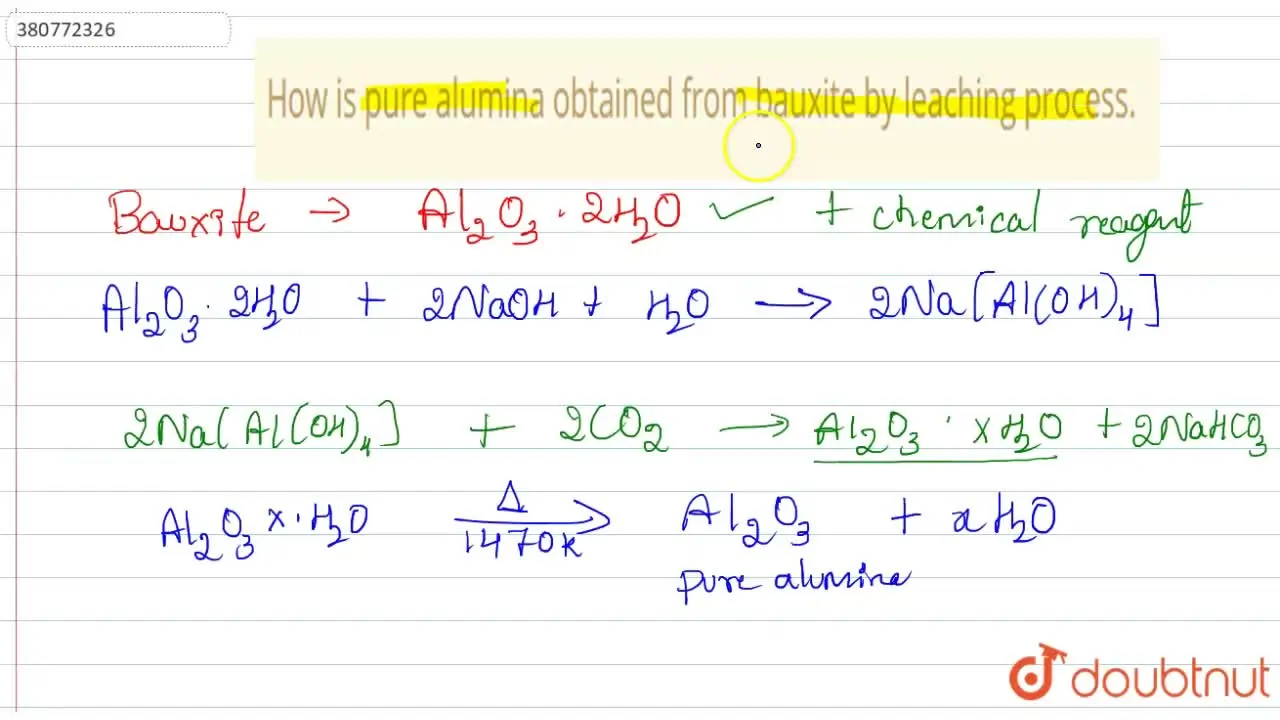 380772326
How is pure alumina obtained from bauxite by leaching process.
Bauxite → Al₂O₃·2H₂O ✓ + chemical reagent
Al₂O₃·2H₂O + 2NaOH + H₂O → 2Na[Al(OH)₄]
2Na(Al(OH)₄] + 2CO₂ → Al₂O₃·xH₂O + 2NaHCO₃
Al₂O₃x·H₂O Δ 1470K → Al₂O₃ + xH₂O
pure alumina
doubtnut